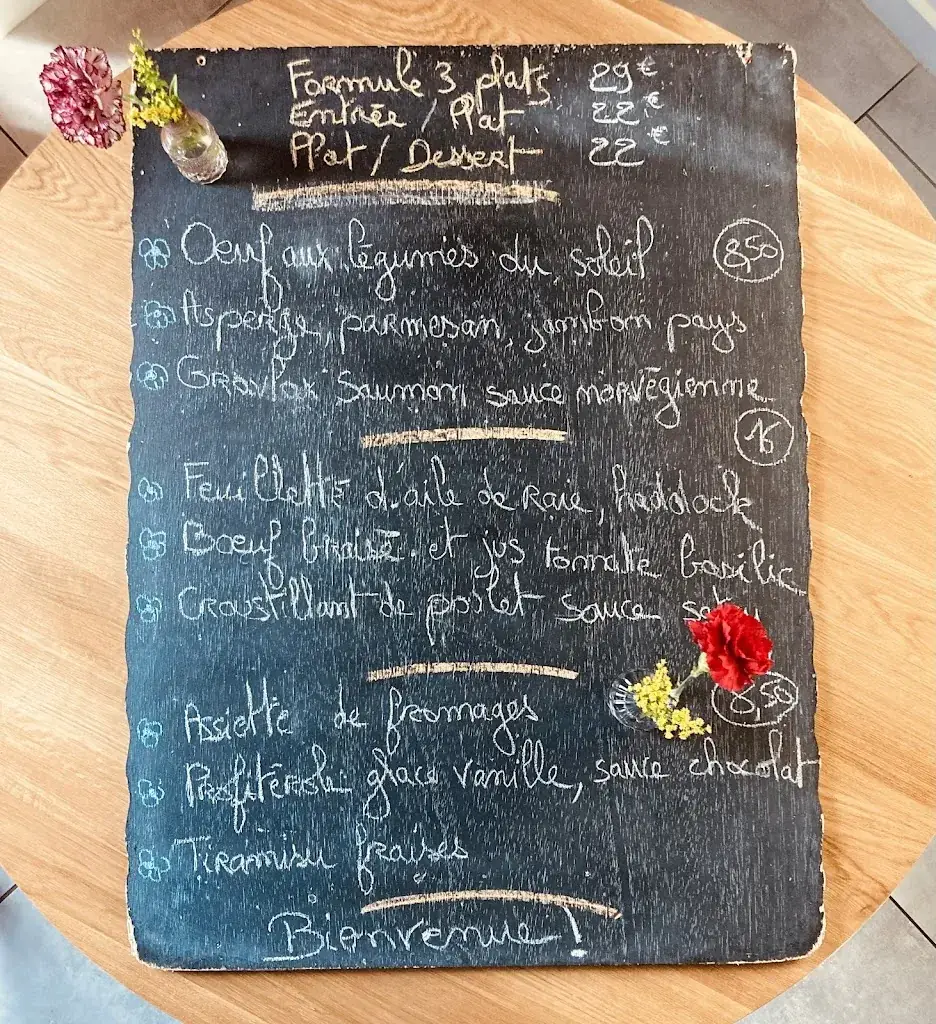 Formule 3 plats 29€
Entrée / Plat 22€
Plat / Dessert 22€
Oeuf aux légumes du soleil 8,50
Asperge, parmesan, jambon pays
Gravlax Saumon sauce norvégienne
16
Feuilletté d'aile de Raie, haddock
Boeuf braisé et jus tomate basilic
Croustillant de poulet sauce
8,50
Assiette de fromages
Profiterole glace vanille, sauce chocolat
Tiramisu fraises
Bienvenue !